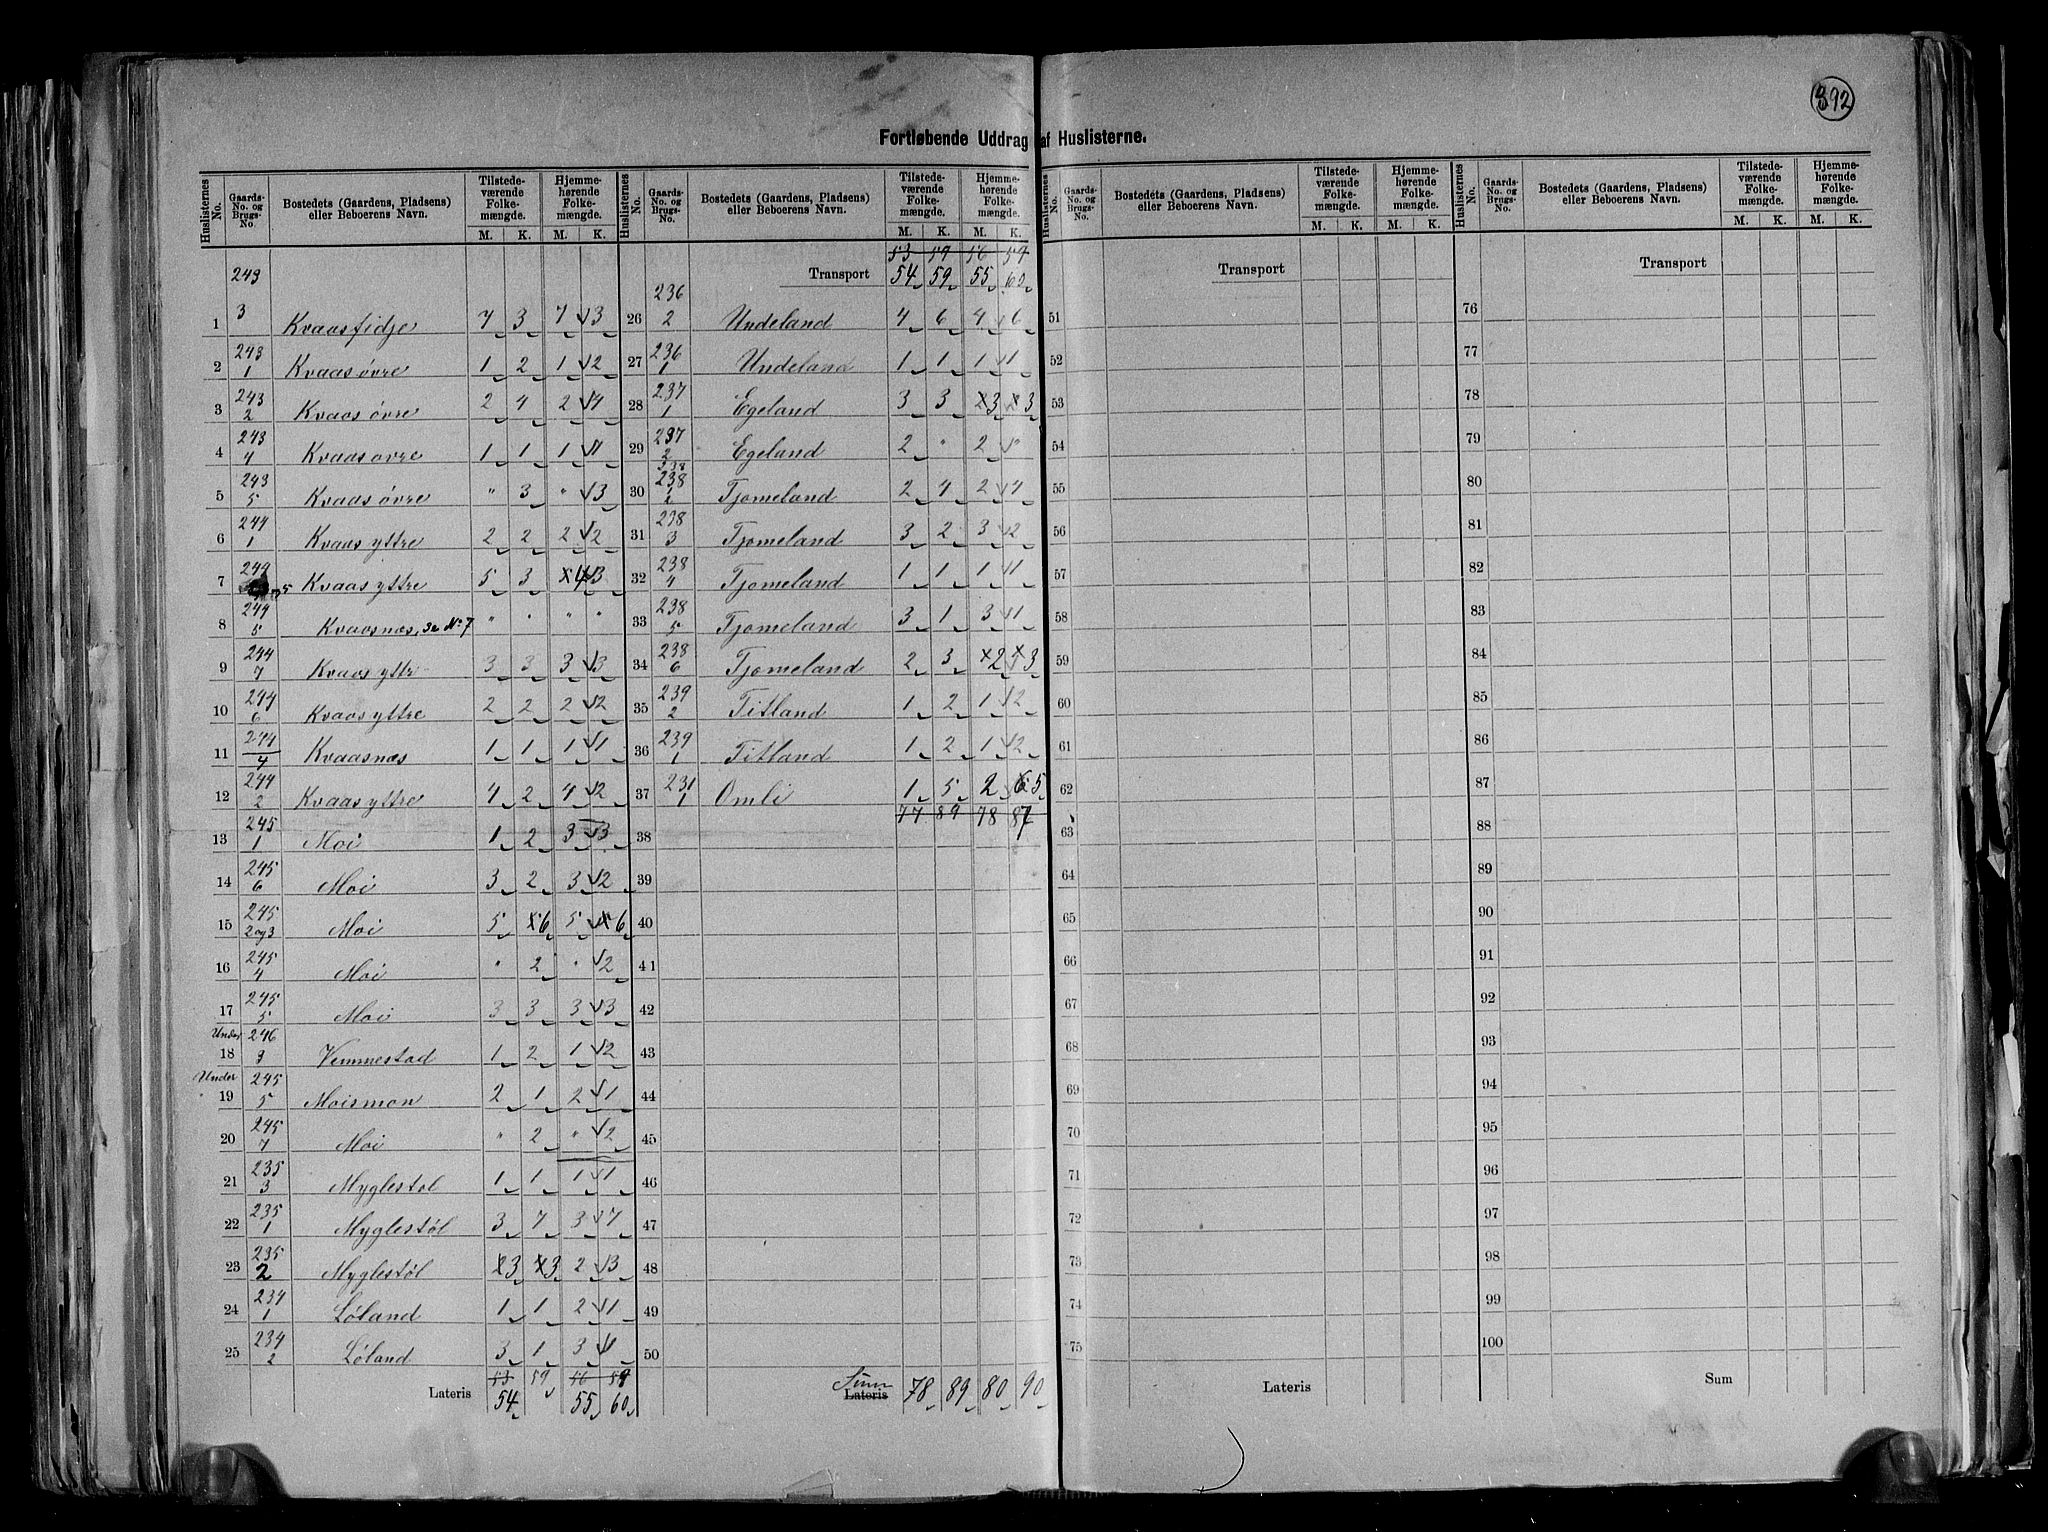 392
Fortløbende Uddrag af Huslisterne.
Huslisternes No. | Gaards-No. og Brugs-No. | Bostedets (Gaardens, Pladsens) eller Beboerens Navn. | Tilstedeværende Folkemængde. M. K. | Hjemmehørende Folkemængde. M. K.
1 | 243 3 | Kvaasfidje | 7 | 3 | 7 | 3
2 | 243 1 | Kvaas övre | 1 | 2 | 1 | 2
3 | 243 2 | Kvaas övre | 2 | 4 | 2 | 4
4 | 243 4 | Kvaas övre | 1 | 1 | 1 | 1
5 | 243 5 | Kvaas övre | " | 3 | " | 3
6 | 244 1 | Kvaas yttre | 2 | 2 | 2 | 2
7 | 244 | Kvaas yttre | 5 | 3 | 4 | 3
8 | 244 5 | Kvaasnæs, se No 7 | " | " | " | "
9 | 244 7 | Kvaas yttre | 3 | 3 | 3 | 3
10 | 244 6 | Kvaas yttre | 2 | 2 | 2 | 2
11 | 244 4 | Kvaasnæs | 1 | 1 | 1 | 1
12 | 244 2 | Kvaas yttre | 4 | 2 | 4 | 2
13 | 245 1 | Moi | 1 | 2 | 3 | 3
14 | 245 6 | Moi | 3 | 2 | 3 | 2
15 | 245 2og3 | Moi | 5 | 6 | 5 | 6
16 | 245 4 | Moi | " | 2 | " | 2
17 | 245 5 | Moi | 3 | 3 | 3 | 3
Under 18 | 246 3 | Vemmestad | 1 | 2 | 1 | 2
Under 19 | 245 5 | Moismon | 2 | 1 | 2 | 1
20 | 245 7 | Moi | " | 2 | " | 2
21 | 235 3 | Myglestøl | 1 | 1 | 1 | 1
22 | 235 1 | Myglestøl | 3 | 7 | 3 | 7
23 | 235 2 | Myglestøl | 3 | 3 | 2 | 3
24 | 234 1 | Løland | 1 | 1 | 2 | 1
25 | 234 2 | Løland | 3 | 1 | 3 | 1
53 | 59 | 56 | 59
Lateris | 54 | 55 | 60
Huslisternes No. | Gaards-No. og Brugs-No. | Bostedets (Gaardens, Pladsens) eller Beboerens Navn. | Tilstedeværende Folkemængde. M. K. | Hjemmehørende Folkemængde. M. K.
53 | 59 | 56 | 59
Transport | 54 | 59 | 55 | 60
26 | 236 2 | Undeland | 4 | 6 | 4 | 6
27 | 236 1 | Undeland | 1 | 1 | 1 | 1
28 | 237 1 | Egeland | 3 | 3 | 3 | 3
29 | 237 2 | Egeland | 2 | " | 2 | "
30 | 238 1 2 | Tjomeland | 2 | 4 | 2 | 4
31 | 238 3 | Tjomeland | 3 | 2 | 3 | 2
32 | 238 4 | Tjomeland | 1 | 1 | 1 | 1
33 | 238 5 | Tjomeland | 3 | 1 | 3 | 1
34 | 238 6 | Tjomeland | 2 | 3 | 2 | 3
35 | 239 2 | Titland | 1 | 2 | 1 | 2
36 | 239 1 | Titland | 1 | 2 | 1 | 2
37 | 231 1 | Omli | 1 | 5 | 2 | 5
38 | 77 | 89 | 78 | 87
39
40
41
42
43
44
45
46
47
48
49
50
Sum Lateris | 78 | 89 | 80 | 90
Huslisternes No. | Gaards-No. og Brugs-No. | Bostedets (Gaardens, Pladsens) eller Beboerens Navn. | Tilstedeværende Folkemængde. M. K. | Hjemmehørende Folkemængde. M. K.
Transport
51
52
53
54
55
56
57
58
59
60
61
62
63
64
65
66
67
68
69
70
71
72
73
74
75
Lateris
Huslisternes No. | Gaards-No. og Brugs-No. | Bostedets (Gaardens, Pladsens) eller Beboerens Navn. | Tilstedeværende Folkemængde. M. K. | Hjemmehørende Folkemængde. M. K.
Transport
76
77
78
79
80
81
82
83
84
85
86
87
88
89
90
91
92
93
94
95
96
97
98
99
100
Sum